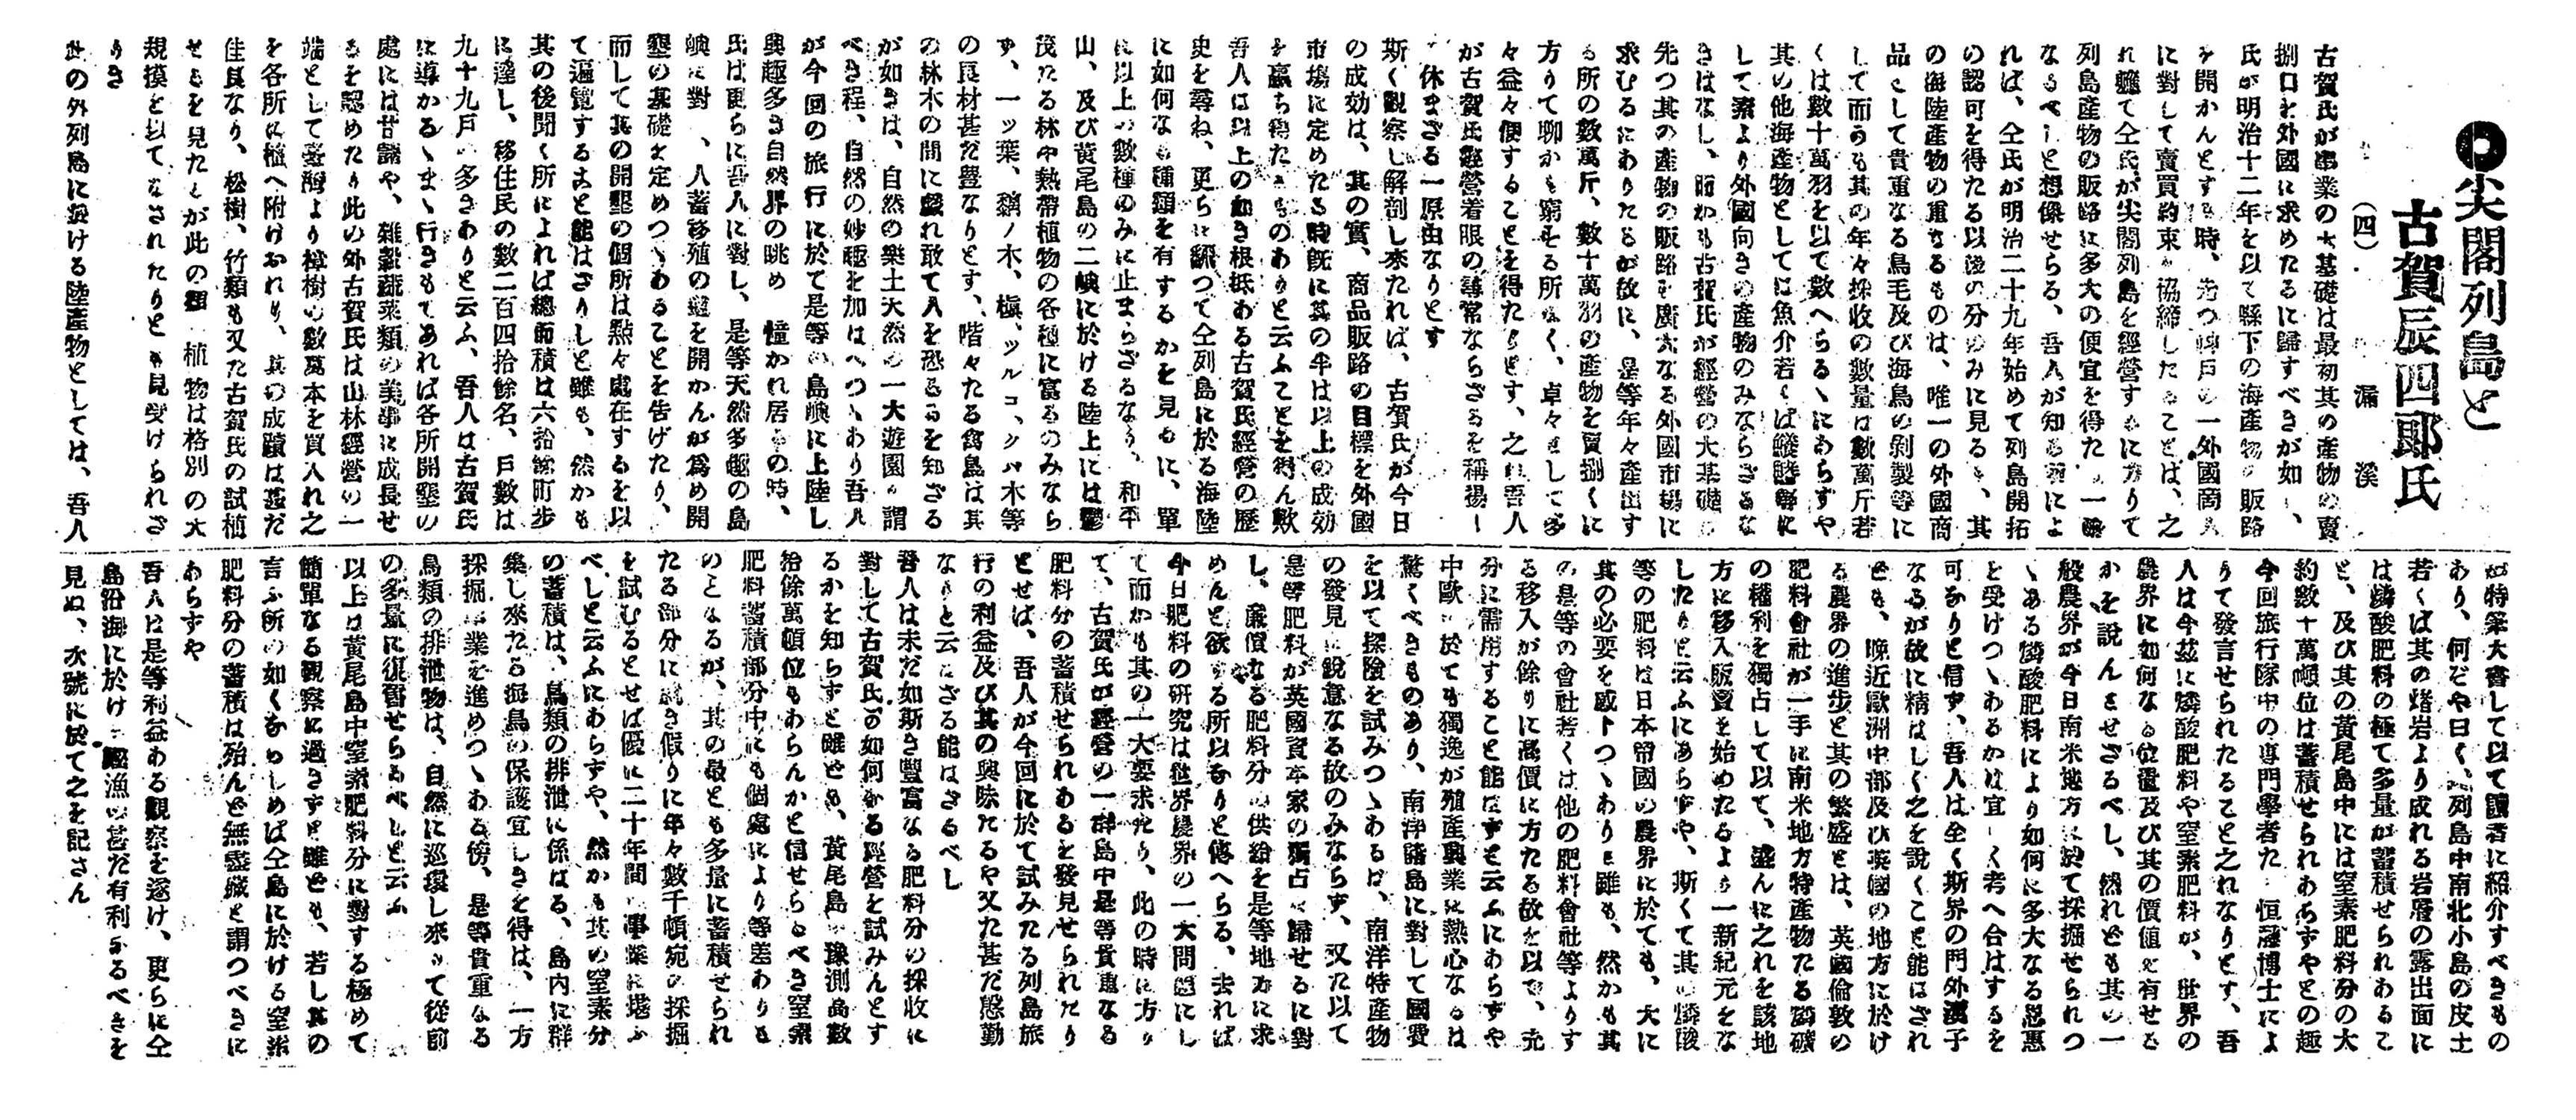 ●尖閣列島と
古賀辰四郎氏
（四）　漏　渓
古賀氏が事業の大基礎は最初其の産物の賣
捌口を外國に求めたるに歸すべきが如し、
氏が明治十二年を以て縣下の海産物の販路
を開かんとする時、先つ神戸の一外國商人
に對して賣買約束を協締したることは、之
れ軈て仝氏が尖閣列島を經營するに方りて
列島産物の販路に多大の便宜を得た
なるべしと想像せらる、吾人が知る所によ
れば、仝氏が明治二十九年始めて列島開拓
の認可を得たる以後の分のみに見るも、其
の海陸産物の重なるものは、唯一の外國商
品として貴重なる鳥毛及び海鳥の剥製等に
して而かも其の年々採收の數量は數萬斤若
くは數十萬羽を以て數へらるゝにあらずや
其の他海産物としては魚介若くは
して素より外國向きの産物のみならざるな
きはなし、而かも古賀氏が經營の大基礎は
先つ其の産物の販路を廣大なる外國市場に
求むるにありたるが故に、是等年々産出す
る所の數萬斤、數十萬羽の産物を賣捌くに
方りて聊かも窮せる所なく、卓々として多
々益々便することを得たりとす、之れ吾人
が古賀氏經營着眼の尋常ならざるを稱揚し
て休まざる一原由なりとす
斯く觀察し解剖し來たれば、古賀氏が今日
の成効は、其の實、商品販路の目標を外國
市場に定めたる時既に其の半は以上の成効
を贏ち得たるものありと云ふことを得ん歟
吾人は以上の如き根柢ある古賀氏經營の歴
史を尋ね、更らに飜つて仝列島に於る海陸
に如何なる種類を有するかを見るに、單
に以上の數種のみに止まらざるなり、和平
山、及び黄尾島の二嶼に於ける陸上には鬱
茂たる林中熱帶植物の各種に富るのみなら
ず、一ッ葉、　ノ木、槇、ツルコ、クハ木等
の良材甚だ豊なりとす、階々たる禽鳥は其
の林木の間に　れ敢て人を恐るゝを知ざる
が如きは、自然の樂土天然の一大遊園と謂
べき程、自然の妙趣を加はへつゝあり吾人
が今回の旅行に於て是等の島嶼に上陸し
興趣多き自然界の眺め　憧かれ居るの時、
氏は更らに吾人に對し、是等天然多趣の島
嶼に對し、人畜移殖の道を開かんが爲め開
墾の基礎を定めつゝあることを告げたり、
而して其の開墾の個所は點々處在するを以
て遍覽すること能はざりしと雖も、然かも
其の後聞く所によれば總面積は六拾餘町歩
に達し、移住民の數二百四拾餘名、戸數は
九十九戸の多きありと云ふ、吾人は古賀氏
に導かるゝまゝ行きもてあれば各所開墾の
處には甘藷や、雜穀蔬菜類の美事に成長せ
るを認めたり此の外古賀氏は山林經營の一
端として臺灣より樟樹の數萬本を買入れ之
を各所に植へ附けおれり、其の成蹟は甚だ
佳良なり、松樹、竹類も又た古賀氏の試植
せるを見たるが此の種　植物は格別の大
規摸を以てなされたりとも見受けられざ
りき
此の外列島に於ける陸産物としては、吾人
が特筆大書して以て讀者に紹介すべきもの
あり、何ぞや曰く、列島中南北小島の皮土
若くは其の熔岩より成れる岩層の露出面に
は燐酸肥料の極て多量が蓄積せられあるこ
と、及び其の黄尾島中には窒素肥料分の大
約數十萬噸位は蓄積せられあらずやとの趣
今回旅行隊中の專門學者たる恒藤博士によ
りて發言せられたること之れなりとす、吾
人は今茲に燐酸肥料や窒素肥料が、世界の
農界に如何なる位置及び其の價値を有せる
かを説んとせざるべし、然れども其の一
般農界が今日南米地方に於て採掘せられつ
ゝある燐酸肥料により如何に多大なる恩惠
を受けつゝあるかは宜しく考へ合はするを
可なりと信ず、吾人は全く斯界の門外漢子
なるが故に精はしく之を説くこと能はざれ
とも、晩近歐洲中部及び英國の地方に於け
る農界の進歩と其の繁盛とは、英國倫敦の
肥料會社が一手に南米地方特産物たる燐礦
の權利を獨占して以て、盛んに之れを該地
方に移入販賣を始めたるより一新紀元をな
したりと云ふにあらずや、斯くて其の燐酸
等の肥料は日本帝國の農界に於ても、大に
其の必要を感じつゝありと雖も、然かも其
の是等の會社若くは他の肥料會社等よりす
る移入が餘りに高價に方たる故を以て、充
分に需用すること能はずと云ふにあらずや
中歐に於ても獨逸が殖産興業に熱心なるは
驚くべきものあり、南洋諸島に對して國費
を以て探險を試みつゝあるは、南洋特産物
の發見に鋭意なる故のみならず、又た以て
是等肥料が英國資本家の獨占に歸せるに對
し、廉價なる肥料分の供給を是等地方に求
めんと欲する所以なりと傳へらる、去れば
今日肥料の研究は世界農界の一大問題にし
て而かも其の一大要求たり、此の時に方り
て、古賀氏が經營の一群島中是等貴重なる
肥料分の蓄積せられあるを發見せられたり
とせば、吾人が今回に於て試みたる列島旅
行の利益及び其の興味たるや又た甚だ慇勤
なりと云はざる能はざるべし
吾人は未だ如斯き豐富なる肥料分の採收に
對して古賀氏が如何なる經營を試みんとす
るかを知らずと雖とも、黄尾島の豫測高數
拾餘萬頓位もあらんかと信せらるべき窒素
肥料蓄積部分中にも個處により等差ありも
のとなるが、其の最とも多量に蓄積せられ
たる部分に就き假りに年々數千頓宛の採掘
を試むるとせば優に二十年間の事業に堪ふ
べしと云ふにあらずや、然かも其の窒素分
の蓄積は、鳥類の排泄に係はる、島内に群
集し來たる海鳥の保護宜しきを得は、一方
採掘の業を進めつゝある傍、是等貴重なる
鳥類の排泄物は、自然に巡環し來つて從前
の多量に復舊せらるべしと云ふ
以上は黄尾島中窒素肥料分に對する極めて
簡單なる觀察に過きずと雖とも、若し其の
言ふ所の如くならしめば仝島に於ける窒素
肥料分の蓄積は殆んど無盡藏と謂つべきに
あらずや
吾人は是等利益ある觀察を遂け、更らに仝
島沿海に於ける　漁の甚だ有利なるべきを
見ぬ、次號に於て之を記さん